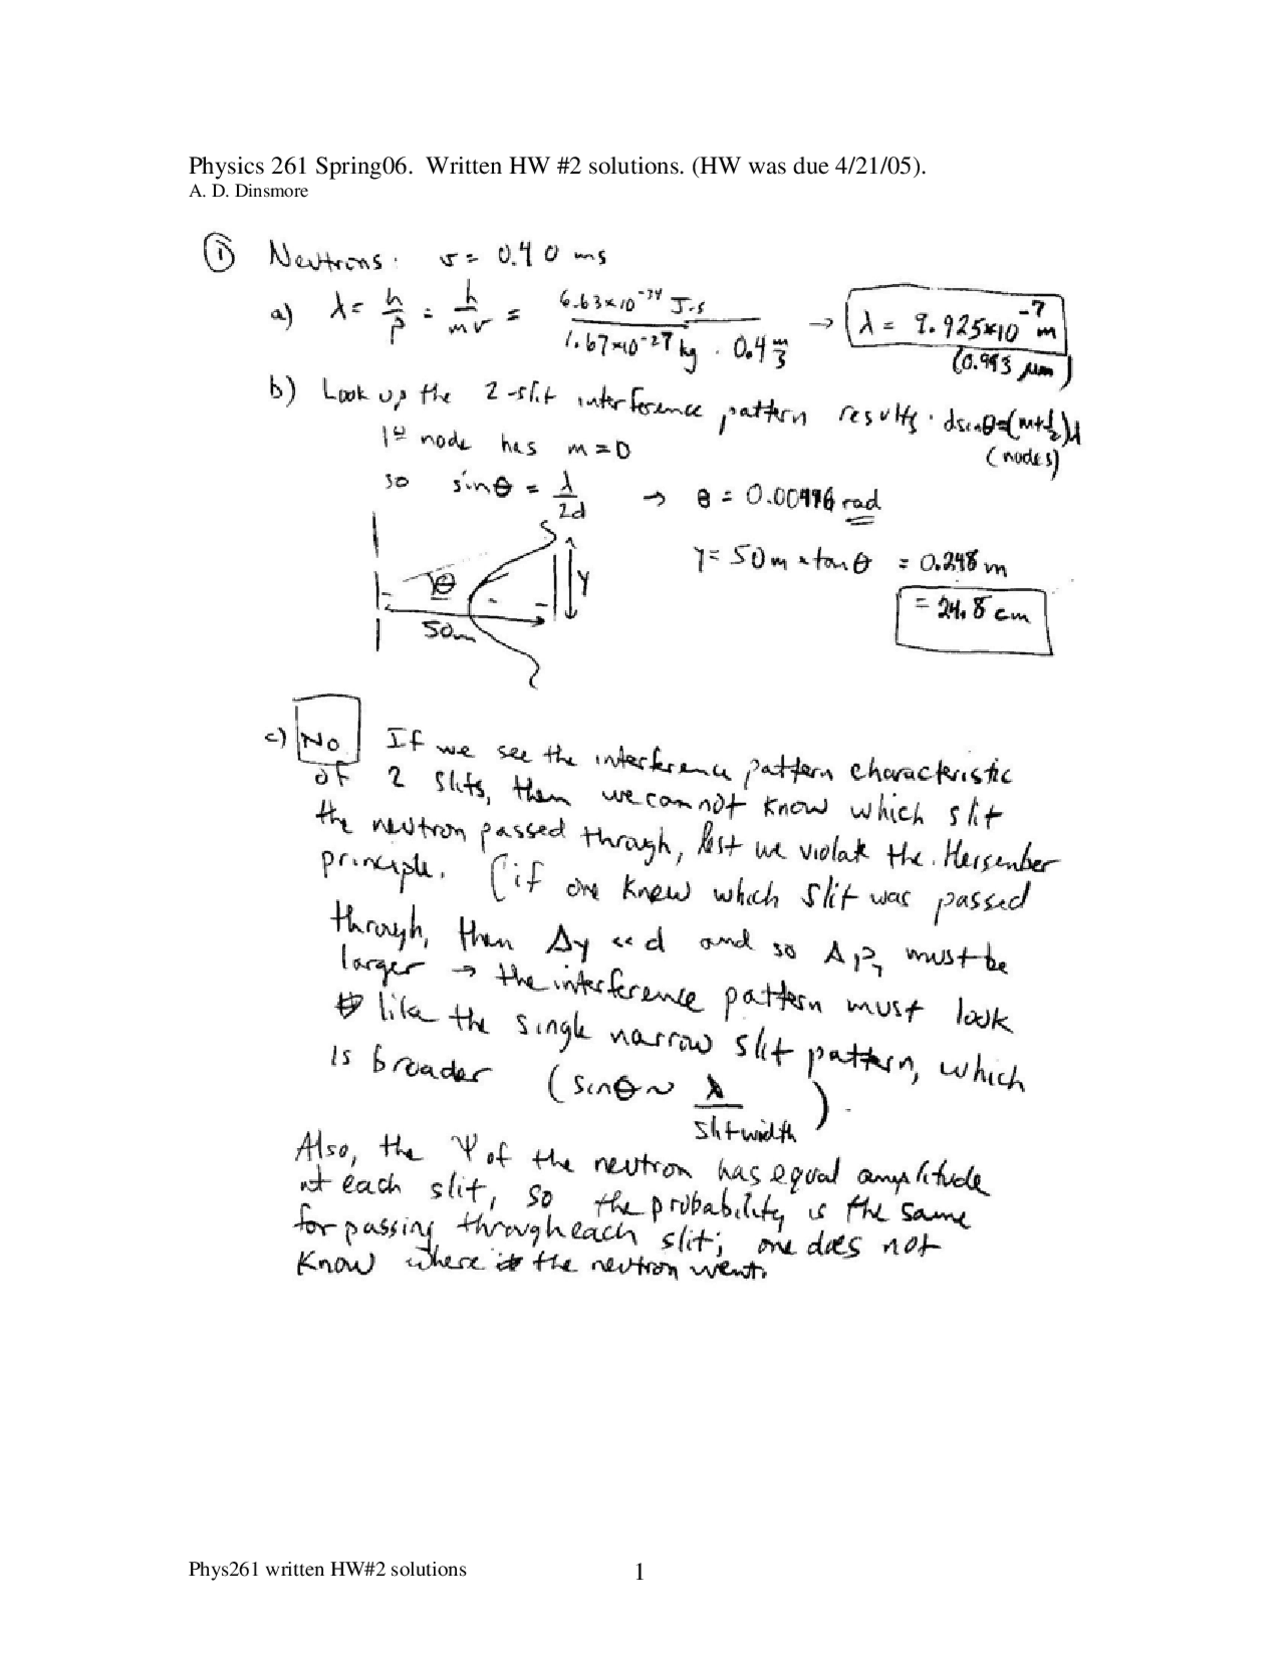 Physics 261 Spring06. Written HW #2 solutions. (HW was due 4/21/05).
A. D. Dinsmore
① Neutrons: v = 0.40 ms
a) λ = h/p = h/mv = 6.63×10^-34 J·s / 1.67×10^-27 kg · 0.4 m/s → λ = 9.925×10^-7 m
(0.993 μm)
b) Look up the 2-slit interference pattern results. dsinθ=(m+1/2)λ
1st node has m=0 (nodes)
so sinθ = λ/2d → θ = 0.00496 rad
y = 50m × tanθ = 0.248 m
= 24.8 cm
θ
y
50m
c) No If we see the interference pattern characteristic
of 2 slits, then we cannot know which slit
the neutron passed through, lest we violate the Heisenber
principle. (if one knew which slit was passed
through, then Δy << d and so ΔPy must be
larger → the interference pattern must look
like the single narrow slit pattern, which
is broader (sinθ ~ λ/slit width).
Also, the Ψ of the neutron has equal amplitude
at each slit, so the probability is the same
for passing through each slit; one does not
know where the neutron went.
Phys261 written HW#2 solutions 1